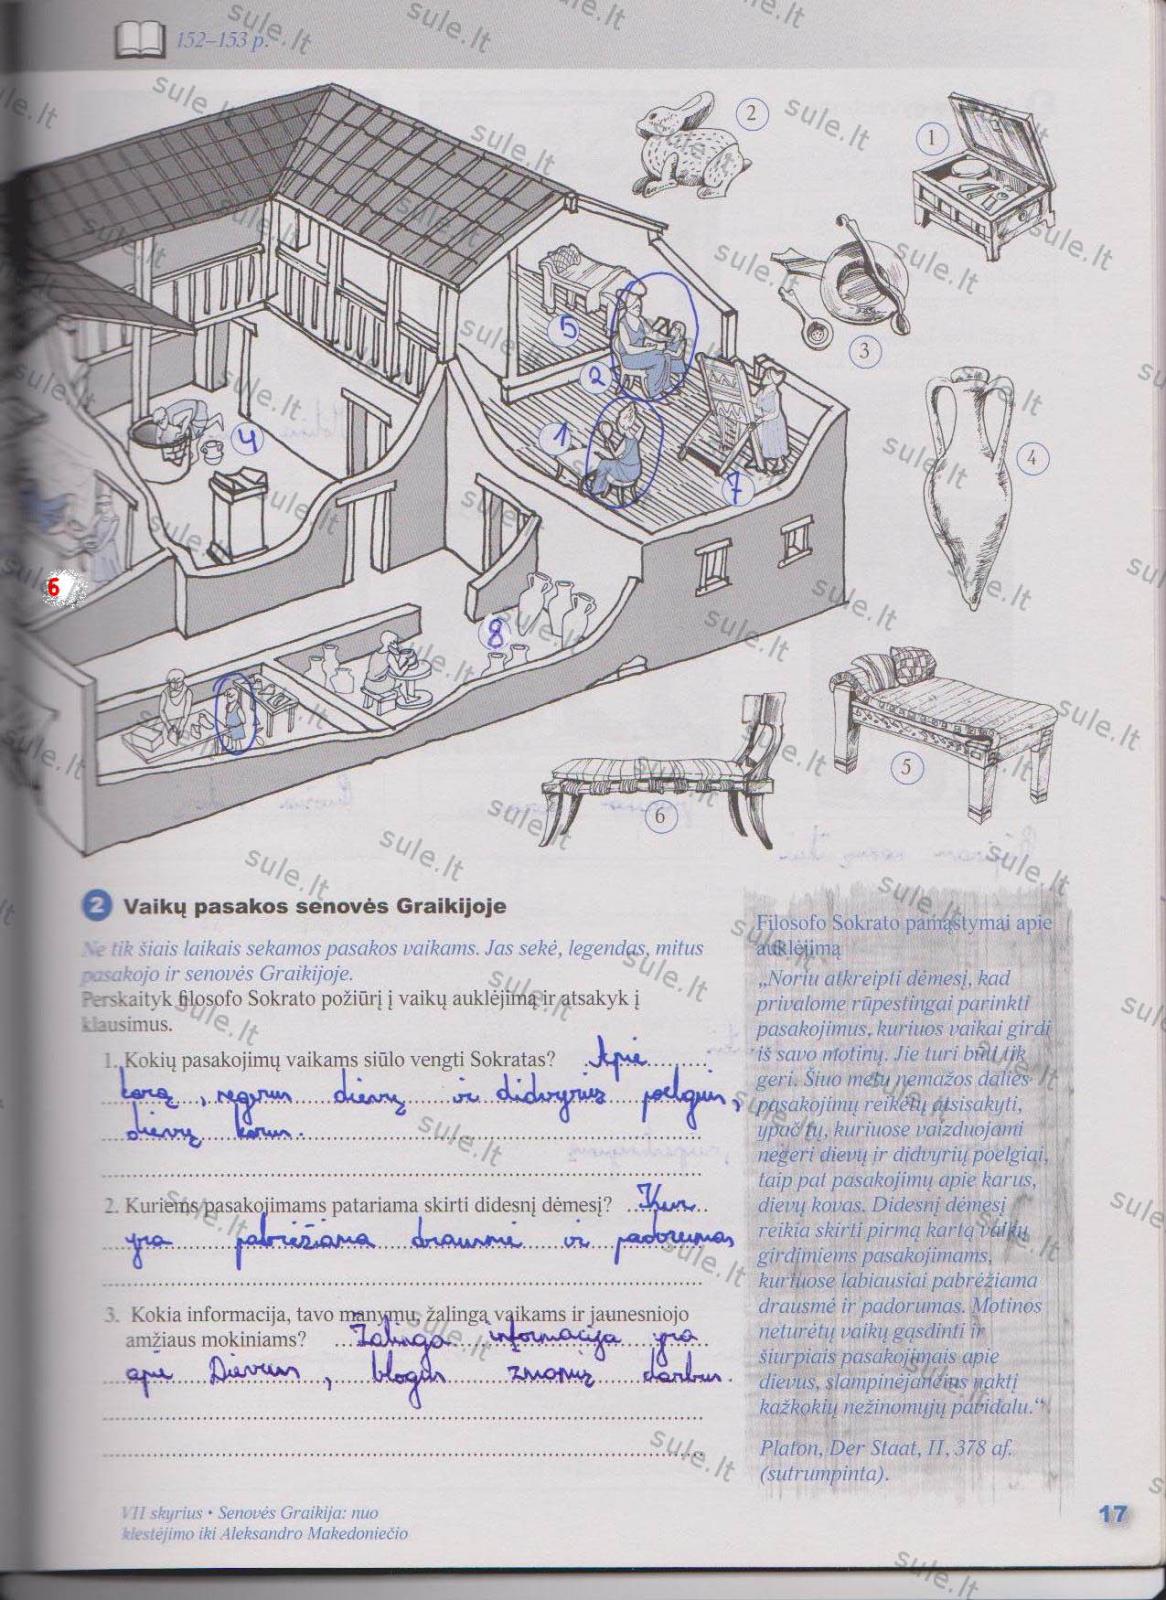 152–153 p.
2
1
3
4
5
6
5
2
1
4
7
6
8
2 Vaikų pasakos senovės Graikijoje
Ne tik šiais laikais sekamos pasakos vaikams. Jas sekė, legendas, mitus
pasakojo ir senovės Graikijoje.
Perskaityk filosofo Sokrato požiūrį į vaikų auklėjimą ir atsakyk į
klausimus.
1. Kokių pasakojimų vaikams siūlo vengti Sokratas? Apie
karą, negerus dievų ir didvyrių poelgius,
dievų karus.
2. Kuriems pasakojimams patariama skirti didesnį dėmesį? Kur
yra pabrėžiama drausmė ir padorumas
3. Kokia informacija, tavo manymu, žalinga vaikams ir jaunesniojo
amžiaus mokiniams? Žalinga informacija yra
apie Dievus, blogus žmonių darbus.
Filosofo Sokrato pamąstymai apie
auklėjimą
„Noriu atkreipti dėmesį, kad
privalome rūpestingai parinkti
pasakojimus, kuriuos vaikai girdi
iš savo motinų. Jie turi būti tik
geri. Šiuo metu nemažos dalies
pasakojimų reikėtų atsisakyti,
ypač tų, kuriuose vaizduojami
negeri dievų ir didvyrių poelgiai,
taip pat pasakojimų apie karus,
dievų kovas. Didesnį dėmesį
reikia skirti pirmą kartą vaikų
girdimiems pasakojimams,
kuriuose labiausiai pabrėžiama
drausmė ir padorumas. Motinos
neturėtų vaikų gąsdinti ir
šiurpiais pasakojimais apie
dievus, slampinėjančius naktį
kažkokių nežinomųjų pavidalu.“
Platon, Der Staat, II, 378 af.
(sutrumpinta).
VII skyrius • Senovės Graikija: nuo
klestėjimo iki Aleksandro Makedoniečio
17
sule.lt